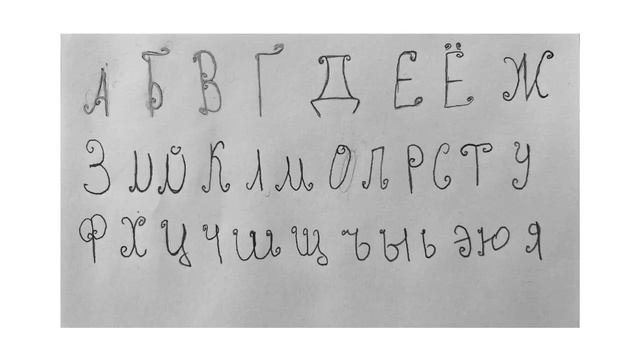 А Б В Г Д Е Ё Ж
З И Й К Л М О П Р С Т У
Ф Х Ц Ч Ш Щ Ъ Ы Ь Э Ю Я